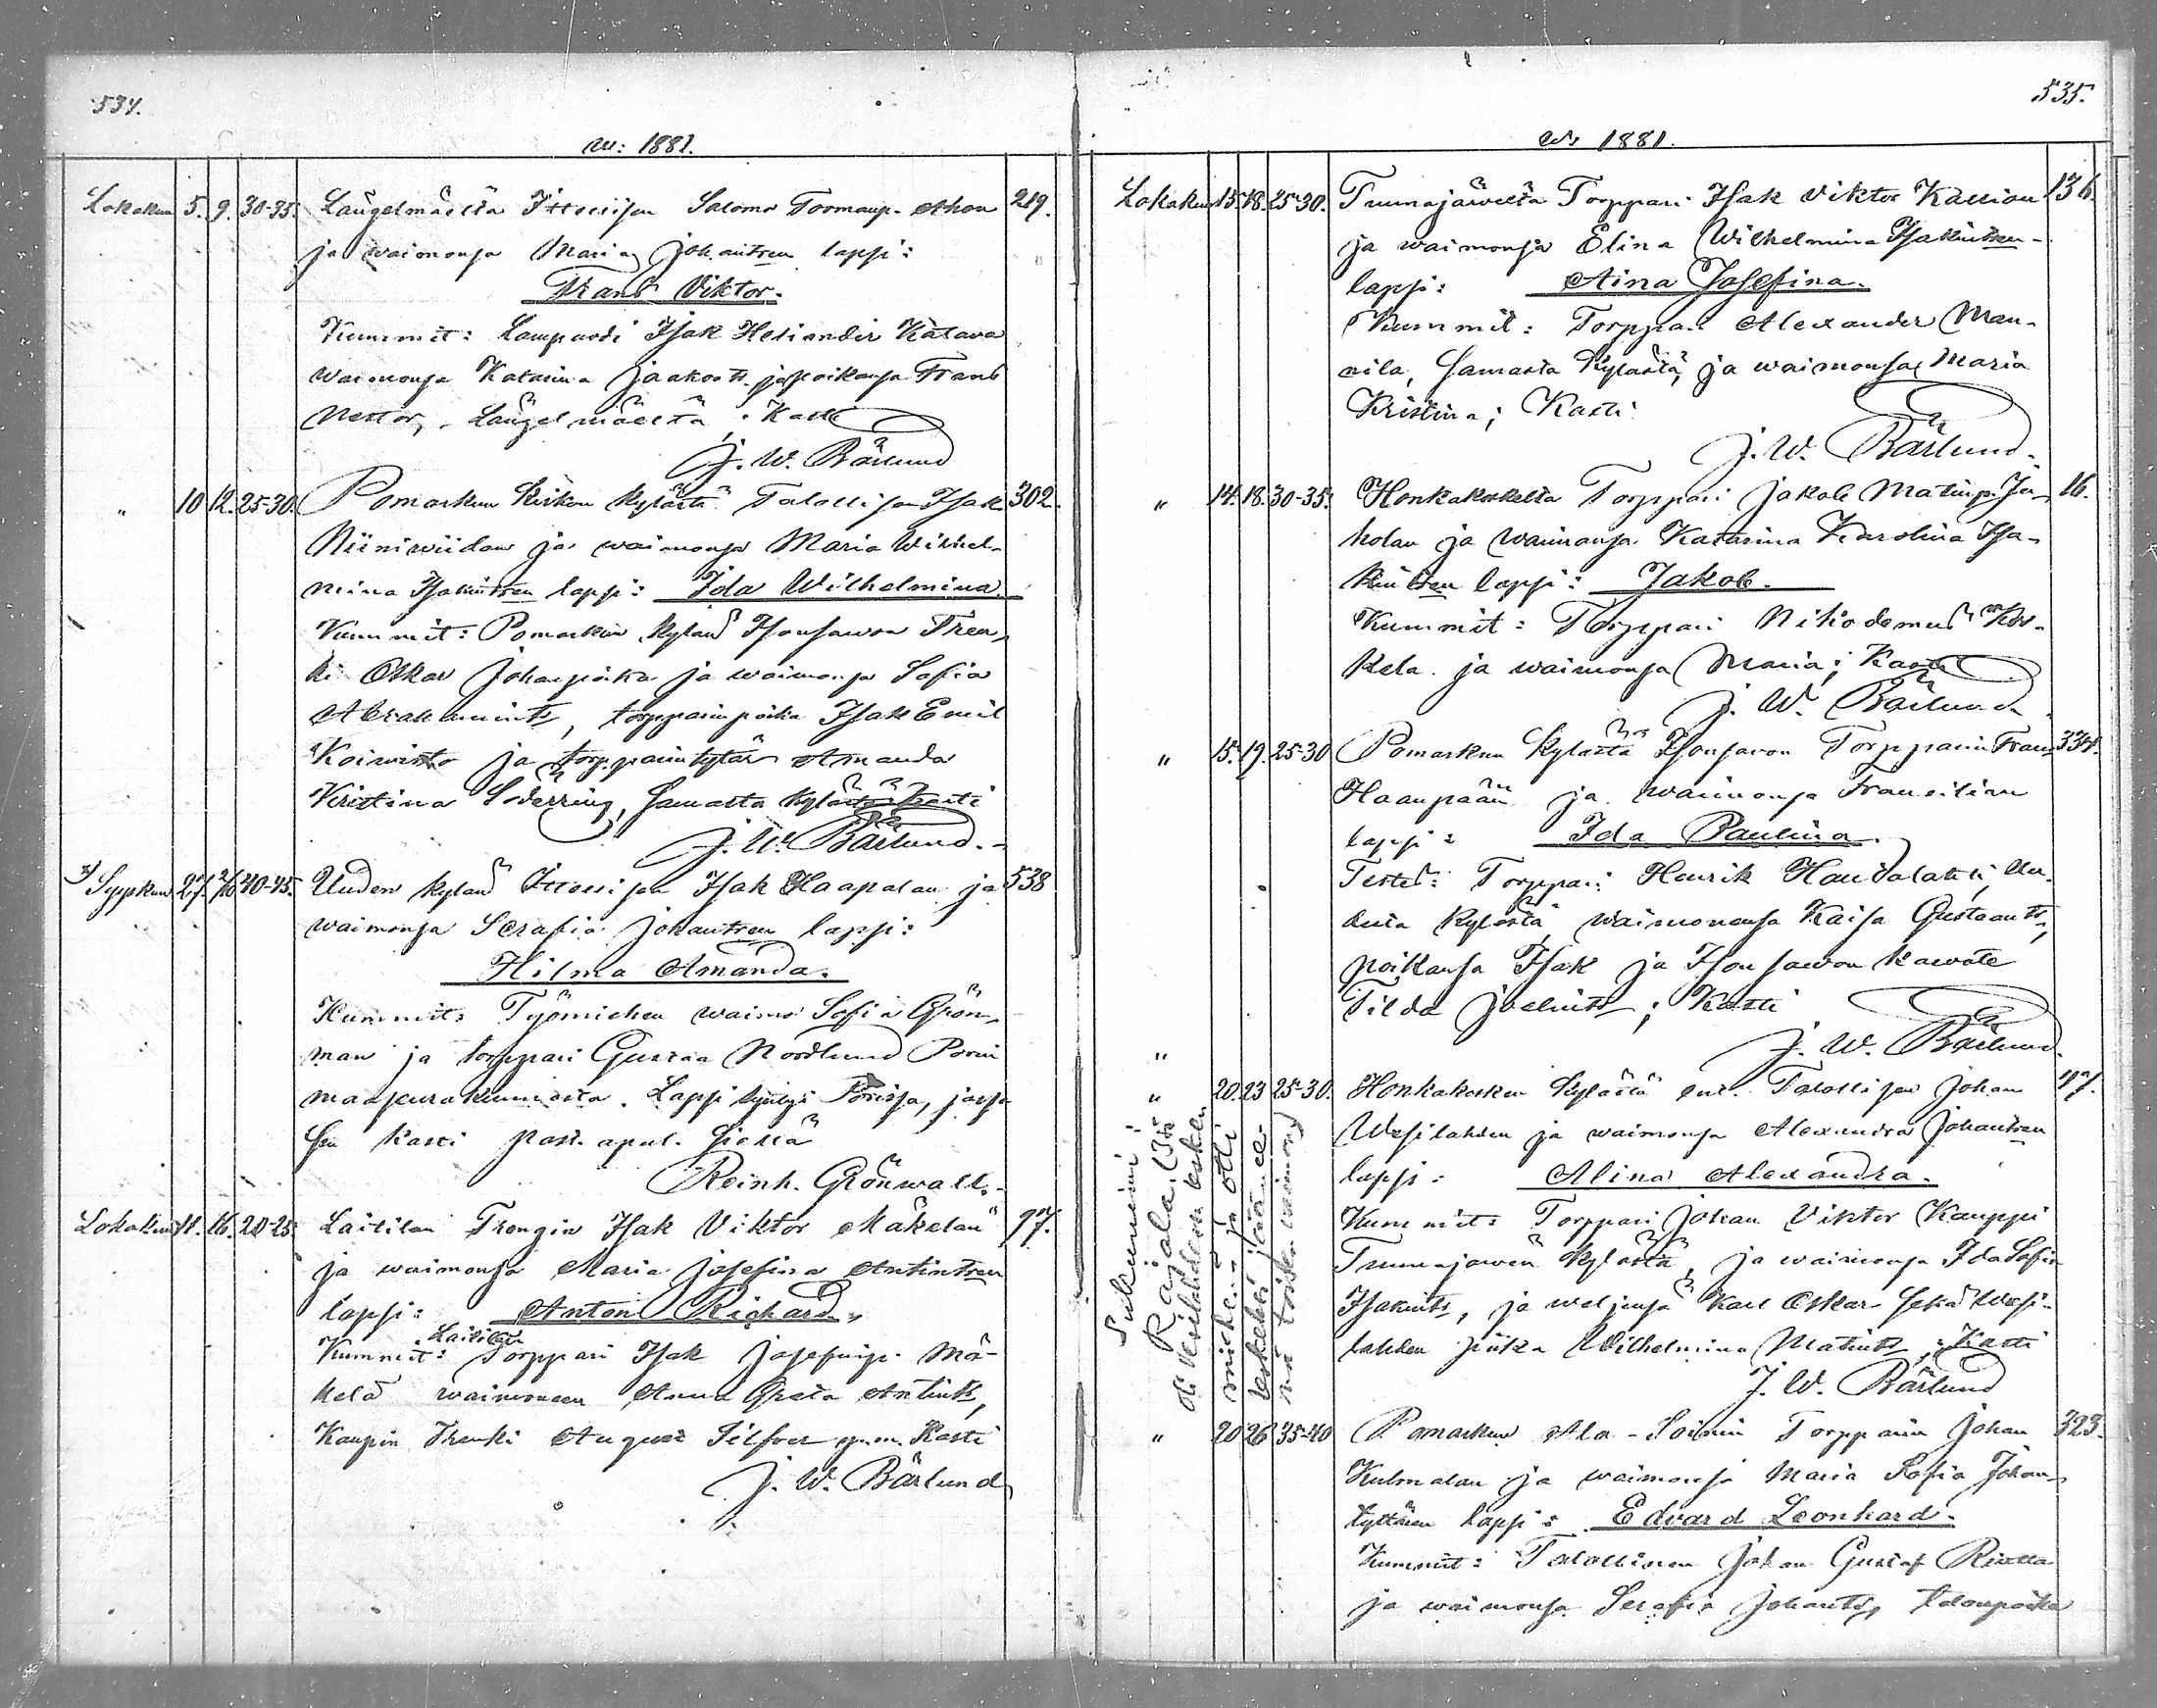 534.
w: 1881.
Lokakun 5. 9. 30-35. Längelmäeltä Itsellisen Salomo Toomaup. Ahon 219.
ja waimonsa Maria Johantsen lapsi:
Frans Viktor.
Kummit: Lampuodi Isak Heliander Katava
waimonsa Katarina Jaakoots. ja poikansa Frans
Nestor, Längelmäeltä; Kasti
J. W. Bärlund
" 10 12. 25-30. Pomarkun Kirkon kylästä Talollisen Isak 302.
Niiniwiidan ja waimonsa Maria Wilhel-
mina Isakintsen lapsi: Ida Wilhelmina
Kummit: Pomarkun kylän Isonsawon Tren-
ki Oskar Johanpoika ja waimonsa Sofia
Abrahamints, torpparinpoika Isak Emil
Koiwisto ja torpparintytär Amanda
Kristina Söderring, samasta kylästä; Kasti
J. W. Bärlund.
Syyskun 27. 2/10 40-45. Uuden kylän Itsellisen Isak Haapalan ja 538
waimonsa Serafia Johantsen lapsi:
Hilma Amanda.
Kummit: Työmiehen waimo Sofia Grön-
man ja torppari Gustaa Nordlund Porin
maaseurakunnasta. Lapsi syntyi Porissa, jossa
sen kasti past. apul. siellä
Reinh. Grönwall.
Lokakun 11. 16. 20-25. Laitilan Trengin Isak Viktor Mäkelän 97.
ja waimonsa Maria Josefina Antintsen
lapsi: Anton Richard.
Laitilan
Kummit: Torppari Isak Josefinp. Mä-
kelä waimoneen Anna Greta Antints,
Kaupin Trenki August Silfver y.m. Kasti
J. W. Bärlund
535.
w: 1881.
Lokakun 15. 18. 25-30. Tuunajärweltä Torppari Isak Viktor Kallion 136.
ja waimonsa Elina Wilhelmina Isakintsen
lapsi: Aina Josefina.
Kummit: Torppari Alexander Man-
nila, samasta kylästä, ja waimonsa Maria
Kristina; Kasti
J. W. Bärlund.
" 14. 18. 30-35. Honkakoskelta Torppari Jakob Matinp. Ju- 16.
holan ja waimonsa Katarina Karolina Isa-
kintsen lapsi: Jakob.
Kummit: Torppari Nikodemus Kos-
kela ja waimonsa Maria; Kasti
J. W. Bärlund
" 15. 19. 25-30 Pomarkun kylästä Isonsawon Torpparin Frans 334.
Haanpään ja waimonsa Fransilian
lapsi: Ida Paulina.
Testes: Torppari Henrik Haudalahti, Uu-
desta kylästä, waimonensa Kaisa Gustaants,
poikansa Isak ja Isonsawon
Tilda Joelints; Kasti
J. W. Bärlund.
"
" 20. 23 25-30. Honkakosken kylästä ent. Talollisen Johan 47.
Wesilahden ja waimonsa Alexandra Johantsen
lapsi: Alina Alexandra.
Kummit: Torppari Johan Viktor Kauppi
Tuunajärwen kylästä, ja waimonsa Ida Sofia
Isakints, ja weljensä Karl Oskar sekä Wesi-
lahden piika Wilhelmina Matints; Kasti
J. W. Bärlund
Sukunimi
Rajala. (Isä
oli Vesilahden lesken
miehenä ja otti
leskeksi jäätyään
toisen vaimon)
" 20 26 35-40 Pomarkun Ala-Soinin Torpparin Johan 323.
Kulmalan ja waimonsa Maria Sofia Johan-
tyttären lapsi: Edvard Leonhard.
Kummit: Talollinen Johan Gustaf
ja waimonsa Serafia Johants, talonpoika